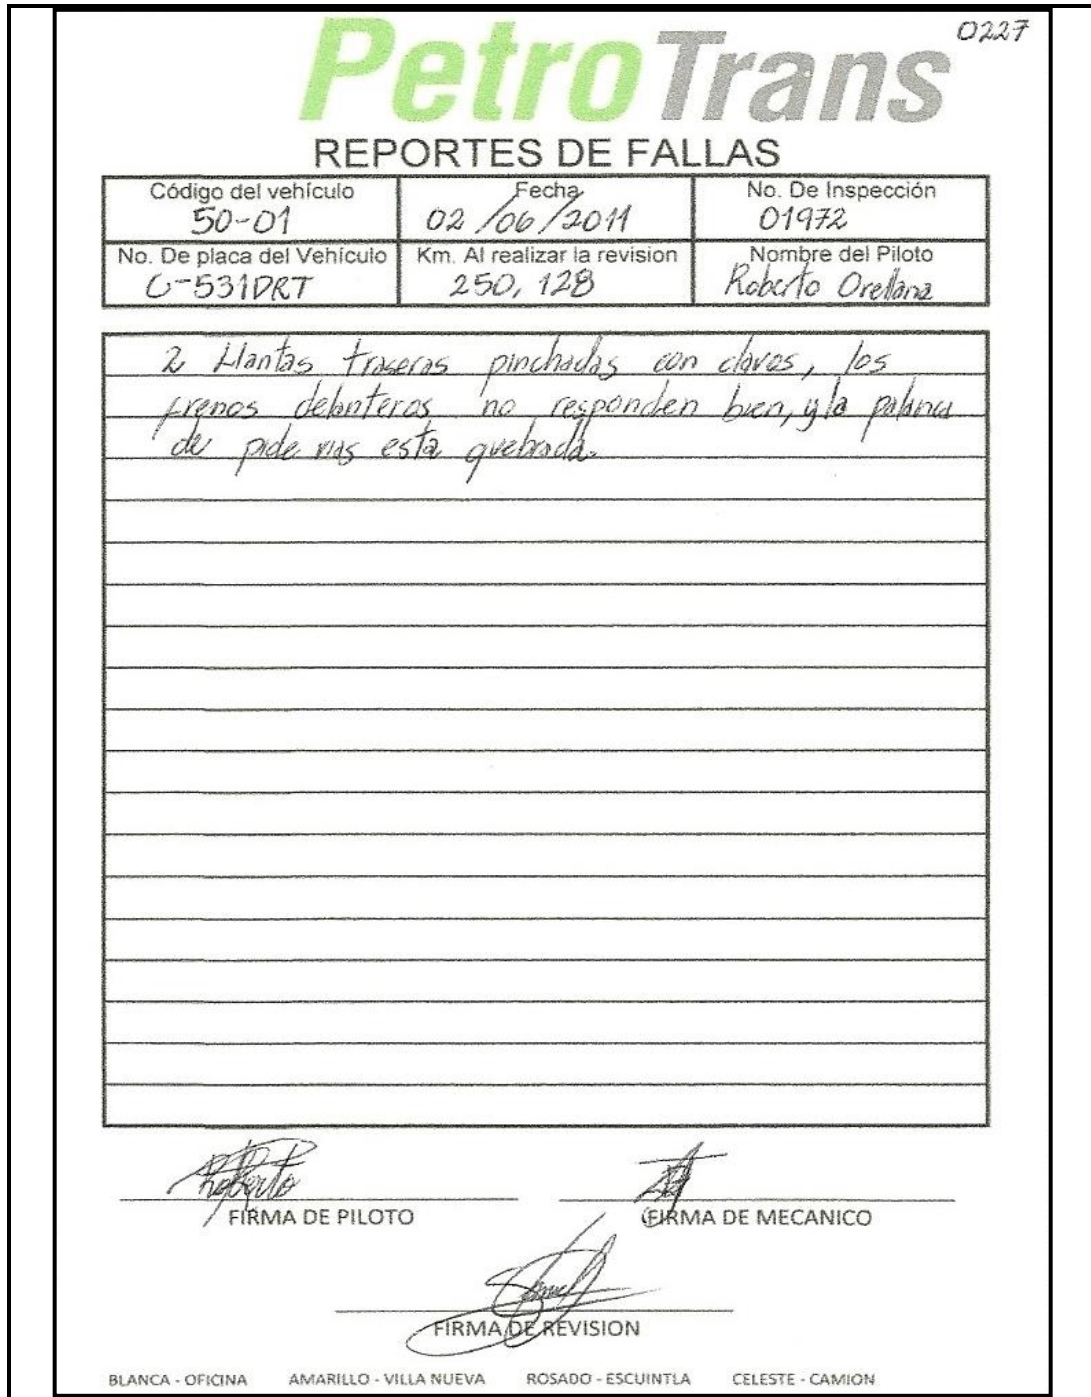 0227
PetroTrans
REPORTES DE FALLAS
Código del vehículo Fecha No. De Inspección
50-01 02/06/2011 01972
No. De placa del Vehículo Km. Al realizar la revision Nombre del Piloto
C-531DRT 250,128 Roberto Orellana
2 Llantas traseras pinchadas con clavos, los
frenos delanteros no responden bien, y la palanca
de pide vias esta quebrada.
Roberto
FIRMA DE PILOTO FIRMA DE MECANICO
FIRMA DE REVISION
BLANCA - OFICINA AMARILLO - VILLA NUEVA ROSADO - ESCUINTLA CELESTE - CAMION